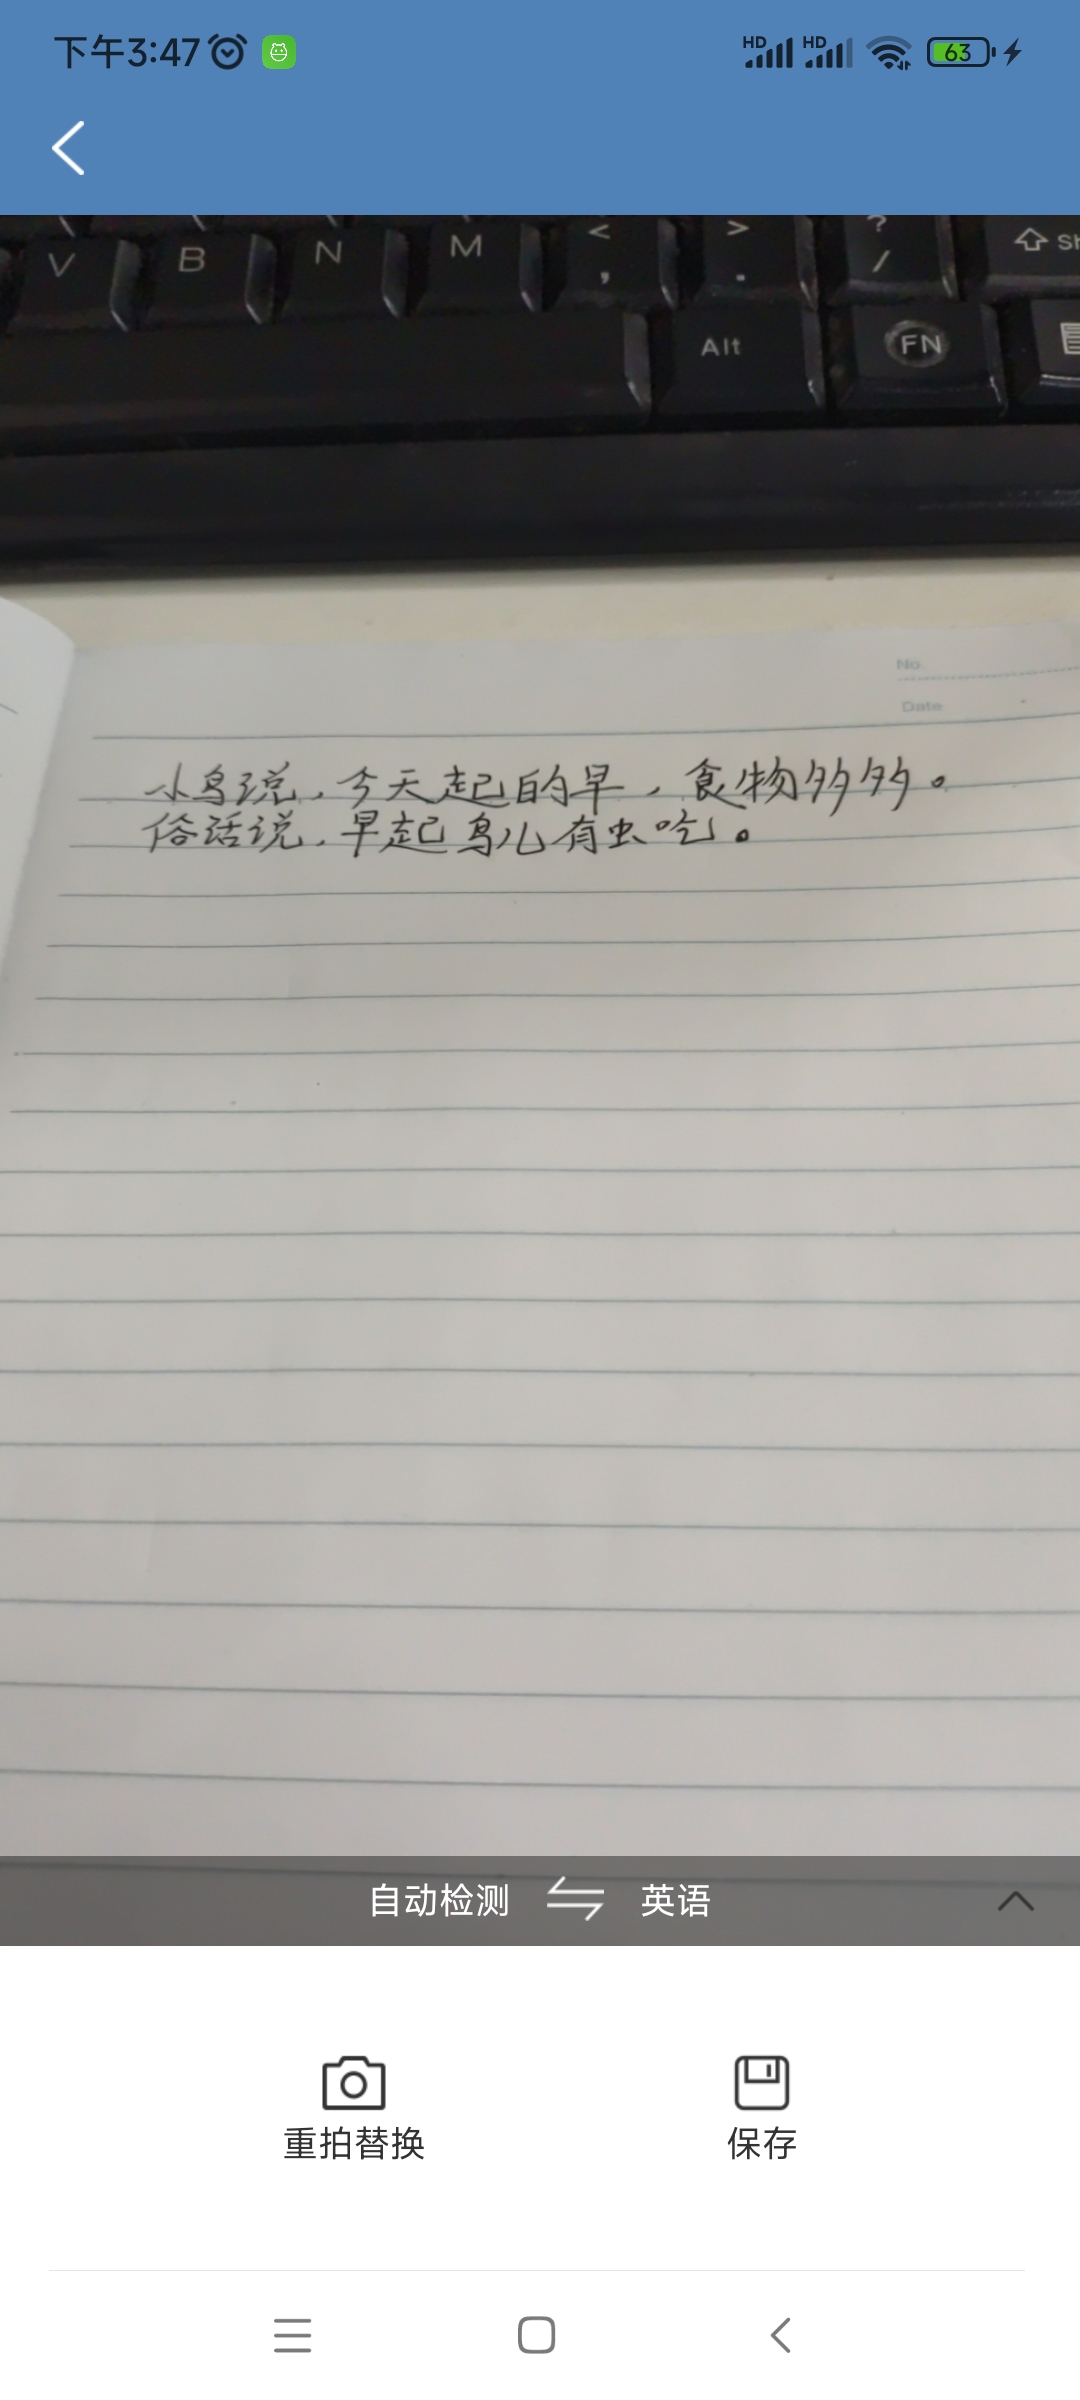 下午3:47
HD HD 63
V B N M < , > . ? / Sh
Alt FN
No.
Date
小鸟说,今天起的早,食物多多。
俗话说,早起鸟儿有虫吃。
自动检测 英语
重拍替换 保存